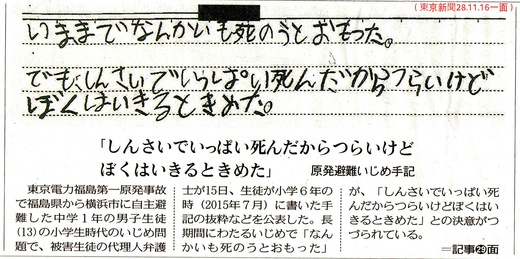 (東京新聞28.11.16一面)
いままでなんかいも死のうとおもった。
でも、しんさいでいっぱい死んだからつらいけど
ぼくはいきるときめた。
「しんさいでいっぱい死んだからつらいけど
ぼくはいきるときめた」 原発避難いじめ手記
東京電力福島第一原発事故
で福島県から横浜市に自主避
難した中学1年の男子生徒
(13)の小学生時代のいじめ問
題で、被害生徒の代理人弁護
士が15日、生徒が小学6年の
時(2015年7月)に書いた手
記の抜粋などを公表した。長
期間にわたるいじめで「なん
かいも死のうとおもった」
が、「しんさいでいっぱい死
んだからつらいけどぼくはい
きるときめた」との決意がつ
づられている。
=記事29面